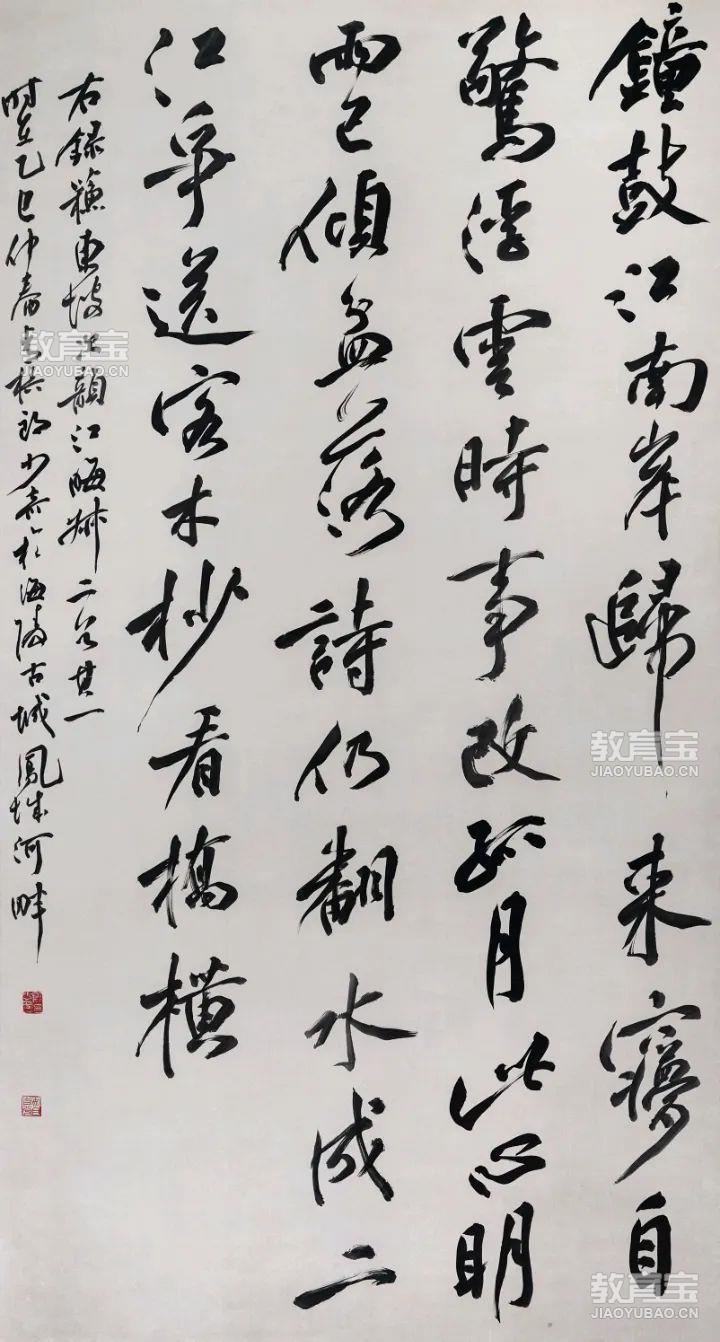 鐘鼓江南岸歸来夢自
驚浮雲時事改孤月此心明
雨已傾盆落詩仍翻水成二
江爭送客木杪看橋橫
右録蘇東坡次韻江晦叔二首其一
时在乙巳仲春於海陵古城鳳城河畔
教育宝
JIAOYUBAO.CN
教育宝
JIAOYUBAO.CN
教育宝
JIAOYUBAO.CN